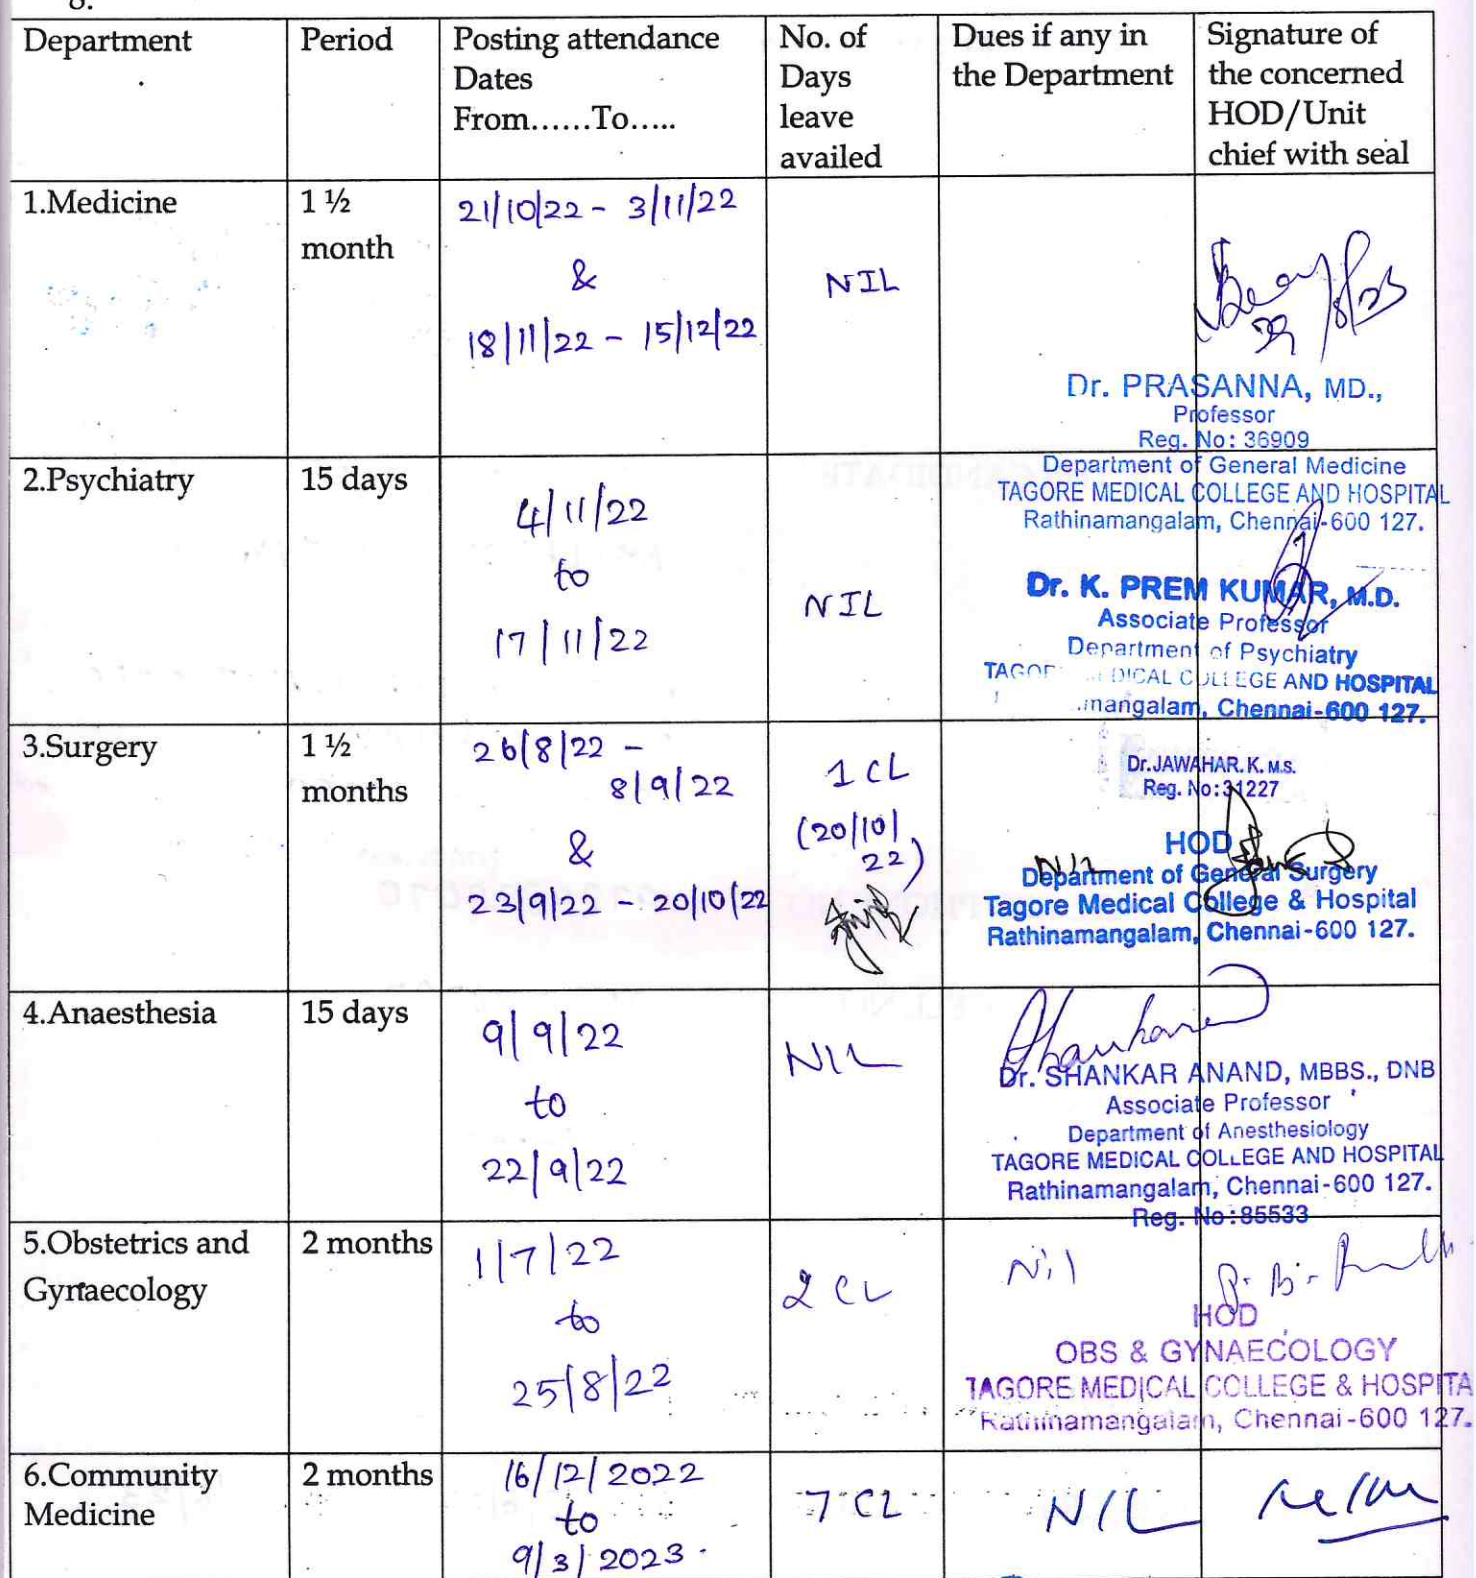 8.
Department
Period
Posting attendance
Dates
From......To.....
No. of
Days
leave
availed
Dues if any in
the Department
Signature of
the concerned
HOD/Unit
chief with seal
1.Medicine
1 ½
month
21/10/22 - 3/11/22
&
18/11/22 - 15/12/22
NIL
Dr. PRASANNA, MD.,
Professor
Reg. No: 36909
Department of General Medicine
TAGORE MEDICAL COLLEGE AND HOSPITAL
Rathinamangalam, Chennai-600 127.
2.Psychiatry
15 days
4/11/22
to
17/11/22
NIL
Dr. K. PREM KUMAR, M.D.
Associate Professor
Department of Psychiatry
TAGOR DICAL COLLEGE AND HOSPITAL
mangalam, Chennai-600 127.
3.Surgery
1 ½
months
26/8/22 -
8/9/22
&
23/9/22 - 20/10/22
1 CL
(20/10/
22)
Nil
Dr.JAWAHAR. K. M.S.
Reg. No:31227
HOD
Department of General Surgery
Tagore Medical College & Hospital
Rathinamangalam, Chennai-600 127.
4.Anaesthesia
15 days
9/9/22
to
22/9/22
NIL
Dr. SHANKAR ANAND, MBBS., DNB
Associate Professor
Department of Anesthesiology
TAGORE MEDICAL COLLEGE AND HOSPITAL
Rathinamangalam, Chennai-600 127.
Reg. No:85533
5.Obstetrics and
Gynaecology
2 months
1/7/22
to
25/8/22
2 CL
Nil
HOD
OBS & GYNAECOLOGY
TAGORE MEDICAL COLLEGE & HOSPITA
Rathinamangalam, Chennai-600 127.
6.Community
Medicine
2 months
16/12/2022
to
9/3/2023.
7 CL
NIL